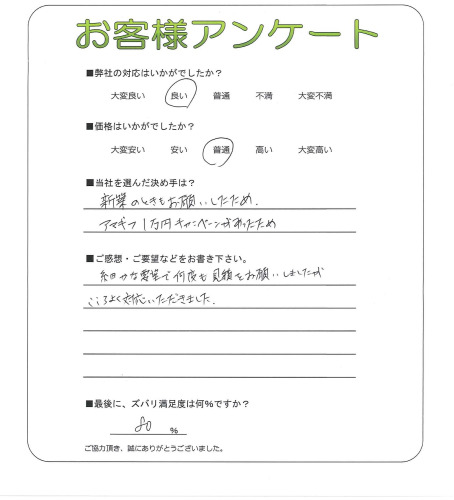 お客様アンケート
■弊社の対応はいかがでしたか?
大変良い 良い 普通 不満 大変不満
■価格はいかがでしたか?
大変安い 安い 普通 高い 大変高い
■当社を選んだ決め手は?
新築のときもお願いしたため.
アマギフ1万円キャンペーンがあったため
■ご感想・ご要望などをお書き下さい。
細かな要望で何度も見積をお願いしましたが
こころよく対応いただきました.
■最後に、ズバリ満足度は何%ですか?
80 %
ご協力頂き、誠にありがとうございました。